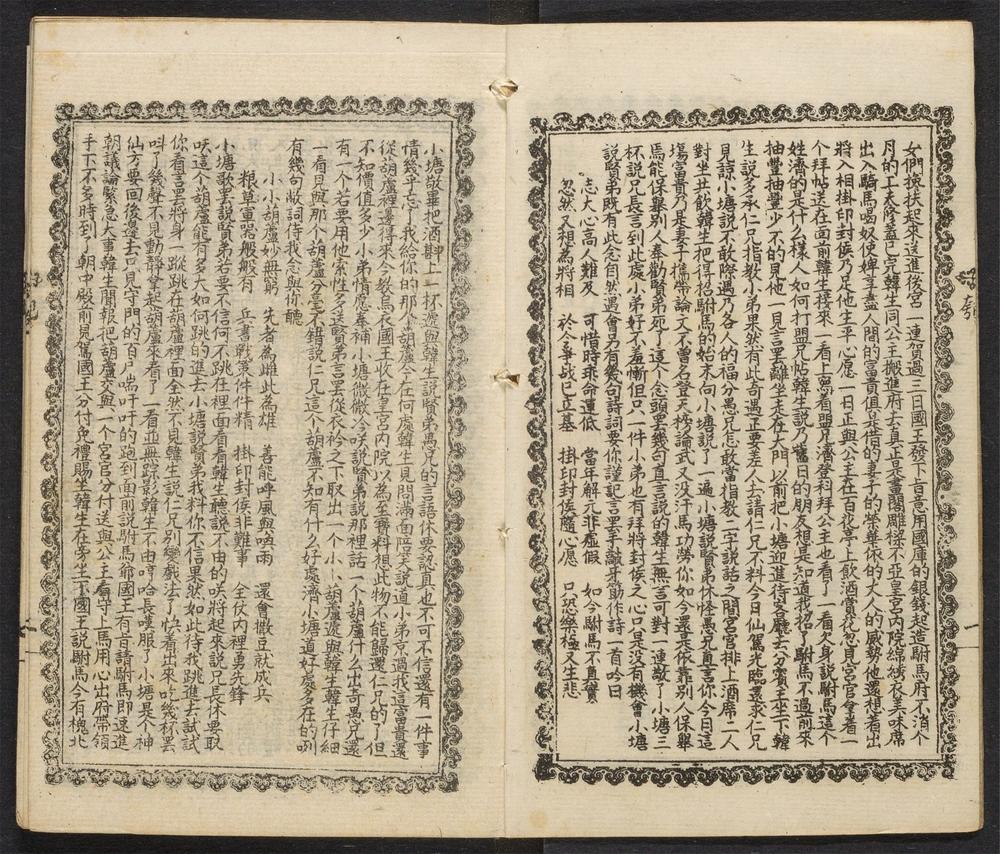 女們挽扶起來送進後宮一連賀過三日國王發下旨意用國庫的銀錢起造駙馬府不消个
月的工夫隆蓋已完韓生同公主搬進府去真正是畫閣雕樑不亞皇宮內院綿綉衣美味席
出入騎馬喝奴使婢享盡人間的富貴值是借的妻子的榮華依的丈人的威勢他還想着出
將入相掛印封侯乃足他生平心愿一日正與公主在百花亭上飲酒賞花忽見宮官拿着一
个拜帖送在面前韓生接來一看上寫着盟兄濟登科拜公主也看了一看欠身說駙馬這个
姓濟的是什么樣人如何打盟兄帖韓生說乃舊日的朋友想是知道我招了駙馬不過前來
抽豐抽豐少不的見他一見言罢離坐走在大門以前把小塘迎進待客廳去分賓主坐下韓
生說多多承仁兄指教小弟果然有此奇遇正要差人去請仁兄不料今日仙駕光臨塞求仁兄
見諒小塘說不敢際遇乃各人的福分愚兄怎敢當指教二字說話之間宮官排上酒席二人
對坐共飲韓生把得招駙馬的始末向小塘說了一遍小塘說賢弟休怪愚兄直言你今日這
塲富貴乃是妻子攜帶論文不曾名登天榜論武又沒汗馬功勞你如今還是依靠別人保舉
焉能保舉別人奉勸賢弟死了這个念頭罢幾句直言說的韓生無言可對一連敬了小塘三
杯說兄長言到此處小弟好不羞慚但只一件小弟也有拜將封侯之心只是沒有機會小塘
說賢弟既有此念自然遇會另有幾句詩詞要你謹記言罢手敲牙筯作詩一首吟曰
志大心高人難及　可惜時乖命運低　當年解元非虛假　如今駙馬不真實
忽然又相為將相　於今爭战已立基　掛印封侯隨心愿　只恐樂極又生悲
小塘敬畢把酒斟上一杯遞與韓生說賢弟愚兄的言語休要認真也不可不信還有一件事
情幾乎忘了我給你的那个胡盧今在何處韓生見問滿面陪笑說道小弟京過我這富貴還
從葫蘆裡邊得來今教烏衣國王收在皇宮內院以為至寶料想此物不能歸還仁兄的了但
不知價值多少小弟情愿奉補小塘微微冷咲說賢弟說那裡話一个葫蘆什么出奇愚兄還
有一个若要用他索性多送賢弟言罢從衣衿之下取出一个小小葫蘆遞與韓生韓生仔細
一看目與那个胡蘆分毫不錯說仁兄這个胡蘆不知有什么好處濟小塘道好處多在的咧
有幾句敞詞待我念與你聽
小小胡蘆妙無窮　先者為雌此為雄　善能呼風與喚雨　還會撒豆就成兵
粮草軍噐般般有　兵書戰策件件精　掛印封侯非難事　全仗內裡勇先鋒
小塘歌罢說賢弟若要不信何不跳在裡面看看韓生聽說不由的咲將起來說兄長休要取
咲這个胡蘆能有多大如何跳的進去小塘說賢弟我料你不信果然如此待我跳進去試試
你看言罢將身一蹤跳在胡蘆裡面全然不見韓生說仁兄別變戲法了快着出來吃幾杯罢
呌了幾聲不見動靜拿起胡蘆來看了一看並無踪影韓生不由哼哈長嘆服了小塘是个神
仙方要回後邊去只見守門的百戶喘吁吁的跑到面前說駙馬爺國王有旨請駙馬即速進
朝議論緊急大事韓生聞報把胡蘆交與一个宮官分付送與公主看守上馬用心出府帶領
手下不多時到了朝中殿前見駕國王分付免禮賜坐韓生在旁坐下國王說駙馬今有槐北